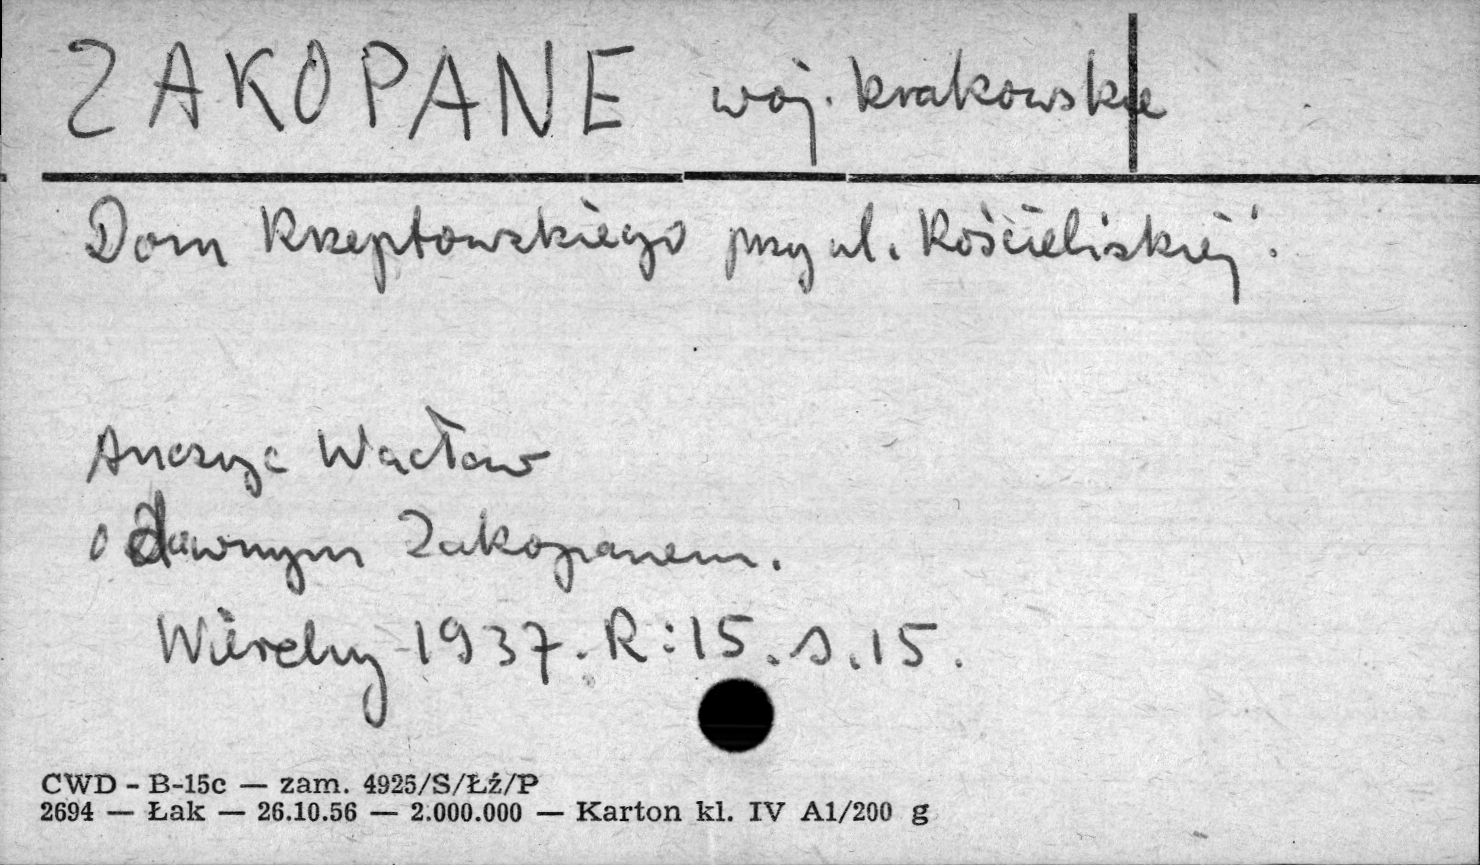 ZAKOPANE woj. krakowskie
Dom Krzeptowskiego przy ul. Kościeliskiej.
Anczyc Wacław
o dawnym Zakopanem.
Wierchy 1937. R:15. s.15.
CWD - B-15c — zam. 4925/S/Łź/P
2694 — Łak — 26.10.56 — 2.000.000 — Karton kl. IV A1/200 g